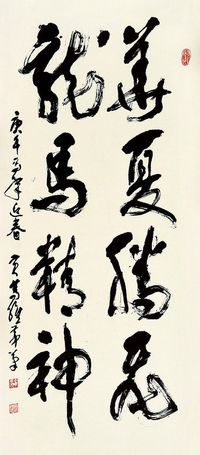 華夏騰飛
龍馬精神
庚午馬年迎春